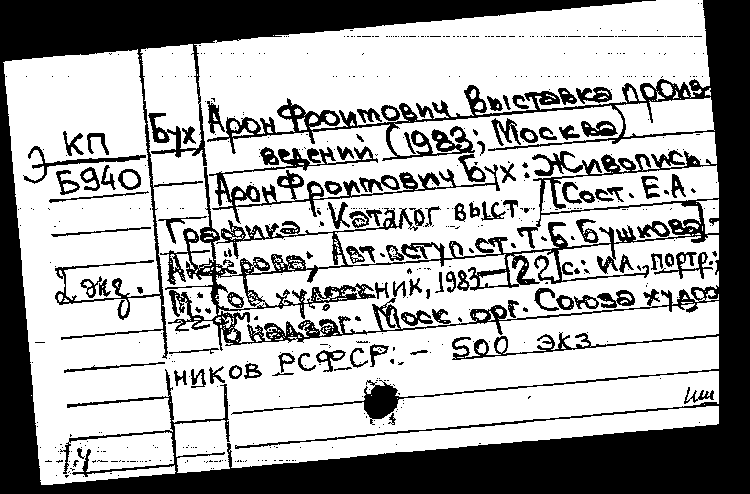 Э КП
Б940
2 экз.
Бух, Арон Фроимович. Выставка произ-
ведений (1983; Москва).
Арон Фроимович Бух: Живопись.
Графика: Каталог выст. / [Сост. Е.А.
Анфёрова; Авт. вступ. ст. Т.Б. Бушкова] -
М.: Сов. художник, 1983. - [22] с.: ил., портр.;
22 см.
В надзаг.: Моск. орг. Союза худож
ников РСФСР. - 500 экз.